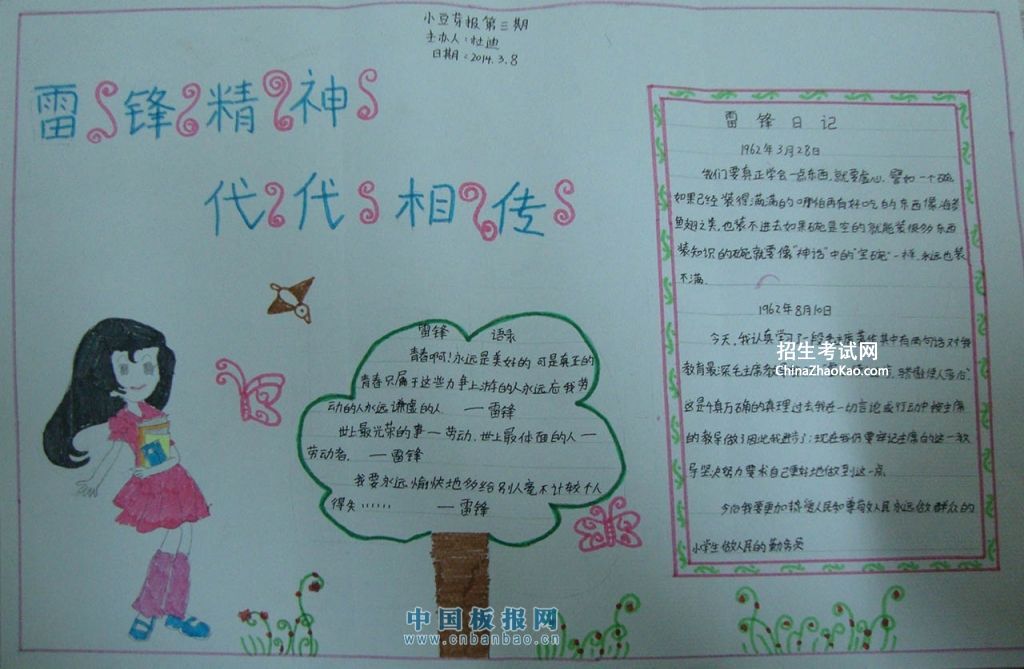 小豆芽报第三期
主办人:杜迪
日期:2014.3.8
雷锋精神
代代相传
雷锋 语录
青春啊!永远是美好的可是真正的
青春只属于这些力争上游的人永远忘我劳
动的人永远谦虚的人. —雷锋
世上最光荣的事—劳动.世上最体面的人—
劳动者. —雷锋
我要永远愉快地多给别人毫不计较个人
得失…… —雷锋
雷锋日记
1962年3月28日
我们要真正学会一点东西,就要虚心.譬如一个碗
如果已经装得满满的哪怕再有好吃的东西像海参
鱼翅之类,也装不进去如果碗是空的就能装很多东西
装知识的碗就要像"神话"中的"宝碗"一样.永远也装
不满.
1962年8月10日
今天,我认真学习了一段毛主席著作其中有两句话对我
教育最深毛主席教
骄傲使人落后".
这是千真万确的真理过去我在一切言论或行动中按主席
的教导做了因此我进步了;现在我仍要牢记主席的这一教
导坚决努力要求自己更好地做到这一点.
今后我要更加热爱人民和尊敬人民永远做群众的
小学生做人民的勤务员
招生考试网
ChinaZhaoKao.com
中国板报网
www.cnbanbao.cn